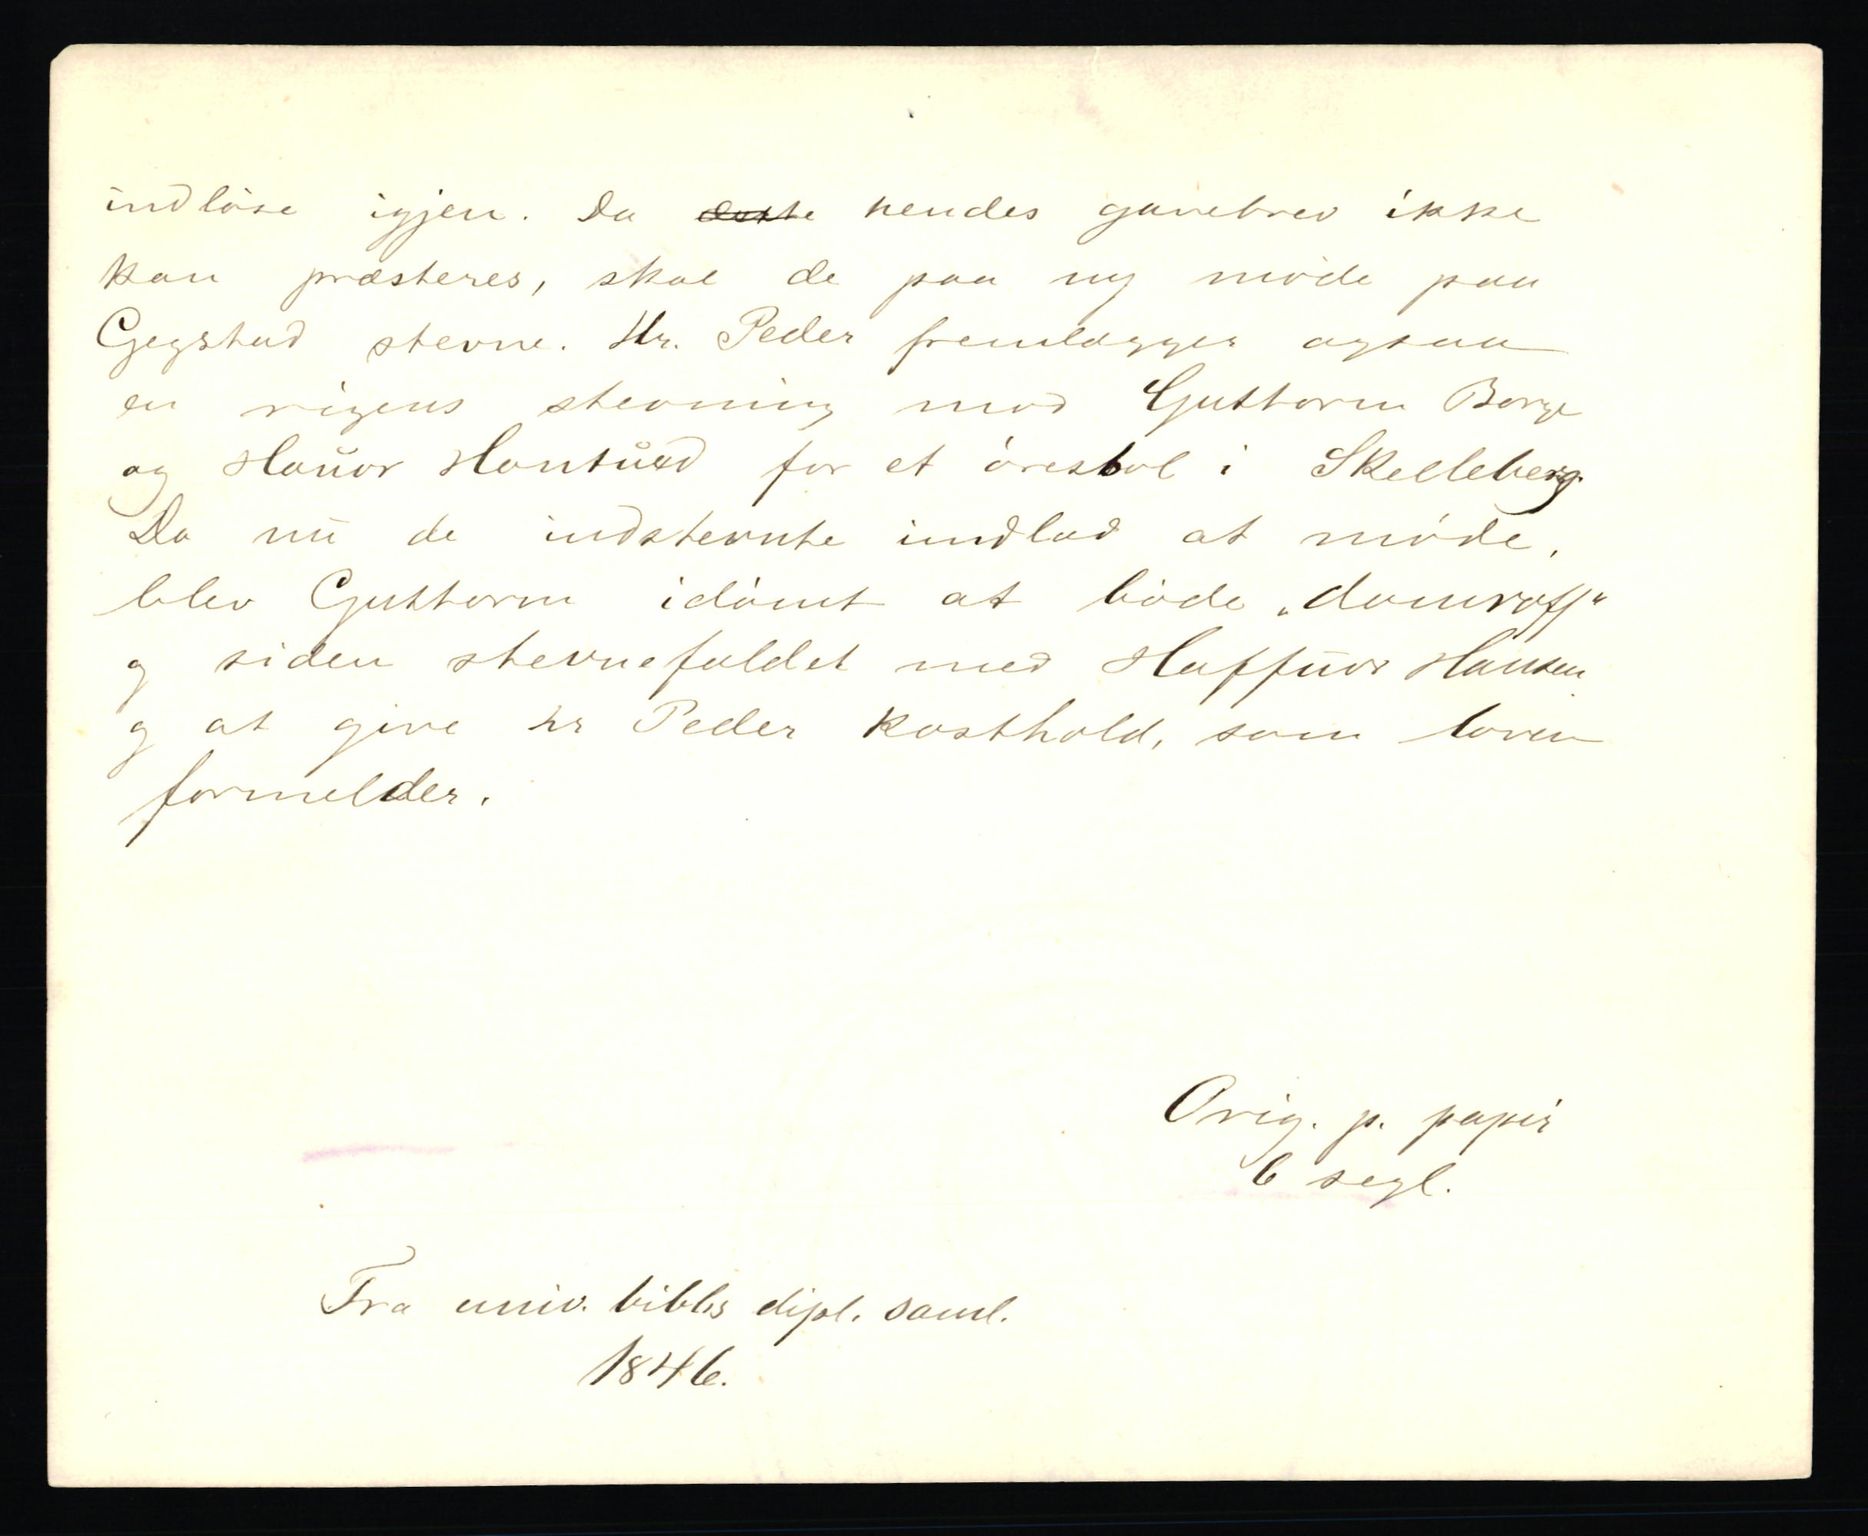 indløse igjen. Da hendes gavebrev ikke
kan præsteres, skal de paa ny møde paa
Gegstad stevne. Hr. Peder fremlægger ogsaa
en rigens stevning mod Guttorm Borge
og Hauor Hontued for et øresbol i Skelleberg.
Da nu de indstevnte indlod at møde,
blev Guttorm idømt at bøde „domroff"
g siden stevnefaldet med Haffuor Hansen
g at give hr Peder kosthold, som loven
formelder.
Orig. p. papir
6 segl.
Fra univ. bibls dipl. saml.
1846.